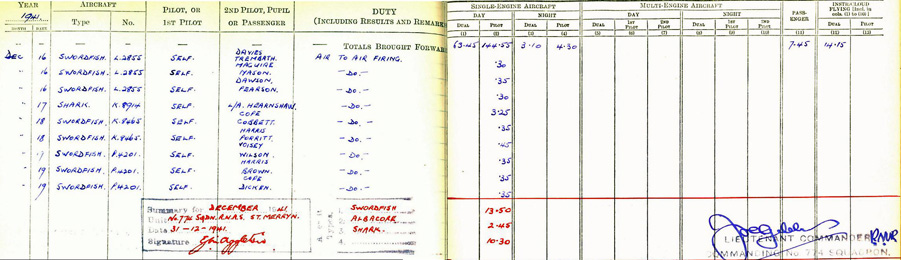 YEAR AIRCRAFT PILOT, OR 1ST PILOT 2ND PILOT, PUPIL OR PASSENGER DUTY (INCLUDING RESULTS AND REMARK SINGLE-ENGINE AIRCRAFT MULTI-ENGINE AIRCRAFT PASS-ENGER
1941. Type No. DAY NIGHT DAY NIGHT
MONTH DATE DUAL PILOT DUAL PILOT DUAL 1ST PILOT 2ND PILOT DUAL 1ST PILOT 2ND PILOT DUAL PILOT
(1) (2) (3) (4) (5) (6) (7) (8) (9) (10) (11) (12) (13)
— — — — — TOTALS BROUGHT FORWAR 63.45 144.55 3.10 4.30 7.45 14.15
DAVIES
DEC 16 SWORDFISH. L.2855 SELF. TREMBATH AIR TO AIR FIRING. .30
MAGUIRE
" 16 SWORDFISH. L.2855 SELF. MASON —DO.— .35
DAWSON.
" 16 SWORDFISH. L.2855 SELF. PEARSON. —DO.— .30
" 17 SHARK. K.8914 SELF. L/A. HEARNSHAW. —DO.— 3.25
COPE
" 18 SWORDFISH. K.8465 SELF. —DO.— .35
HARRIS
" 18 SWORDFISH. K.8465. SELF. PORRITT. —DO.— .45
VOISEY
" SWORDFISH. P.4201. SELF. WILSON —DO.— .35
HARRIS
" 19 SWORDFISH. P.4201. SELF. BROWN. —DO.— .35
COPE
" 19 SWORDFISH. P.4201. SELF. DICKEN. —DO.— .35
Summary for DECEMBER 1941. 1. SWORDFISH 13.50
Unit No 774 SQDN. R.N.A.S. ST. MERRYN. 2. ALBACORE 2.45
Date 31-12-1941. 3. SHARK. 10.30
Signature 4.
LIEUTENANT COMMANDER RNVR
COMMANDING No 774 SQUADRON.